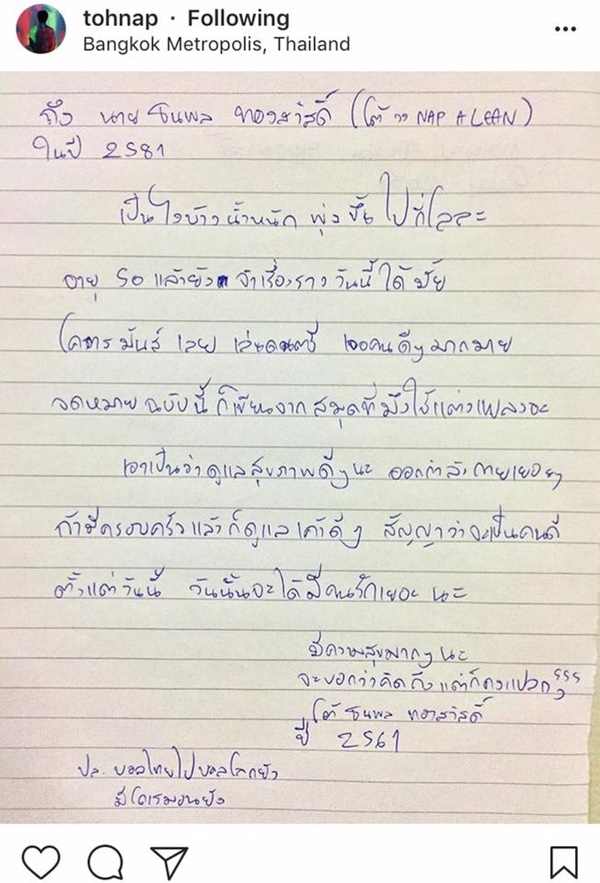 tohnap · Following
Bangkok Metropolis, Thailand
ถึง นาย ธนพล ทองสวัสดิ์ (โต้ วง NAP A LEAN)
ในปี 2581
เป็นไงบ้าง น้ำหนัก พุ่งขึ้น ไปกี่โลละ
อายุ 50 แล้วยัง จำเรื่องราว วันนี้ ได้มั้ย
โคตรมันส์ เลย เล่นดนตรี เจอคนดีๆ มากมาย
จดหมาย ฉบับนี้ ก็เขียนจาก สมุดที่ มึงใช้แต่งเพลงอะ
เอาเป็นว่าดูแลสุขภาพดีๆ นะ ออกกำลังกายเยอะๆ
ถ้ามีครอบครัวแล้วก็ดูแลเค้าดีๆ สัญญาว่าจะเป็นคนดี
ตั้งแต่วันนี้ วันนั้นจะได้มีคนรักเยอะ นะ
มีความสุขมากๆ นะ
จะบอกว่าคิดถึง แต่ก็คงแปลกๆ
โต้ ธนพล ทองสวัสดิ์
ปี 2561
ปล. บอลไทยไปบอลโลกยัง
มีโดเรมอนยัง